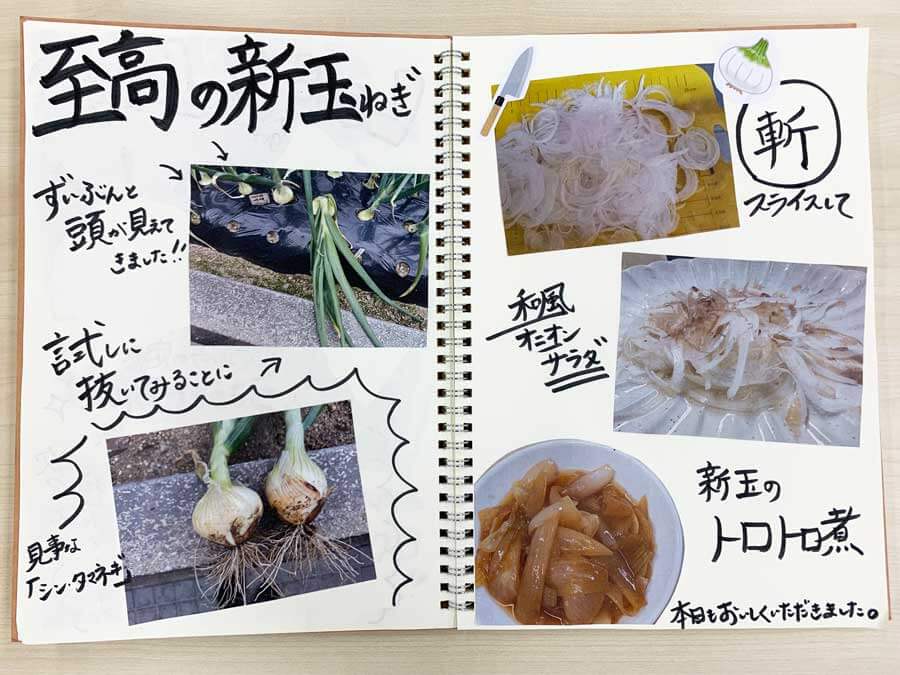 至高の新玉ねぎ
ずいぶんと
頭が見えて
きました!!
試しに
抜いてみることに
見事な
「シン・タマネギ」
斬
スライスして
和風
オニオン
サラダ
新玉の
トロトロ煮
本日もおいしくいただきました。